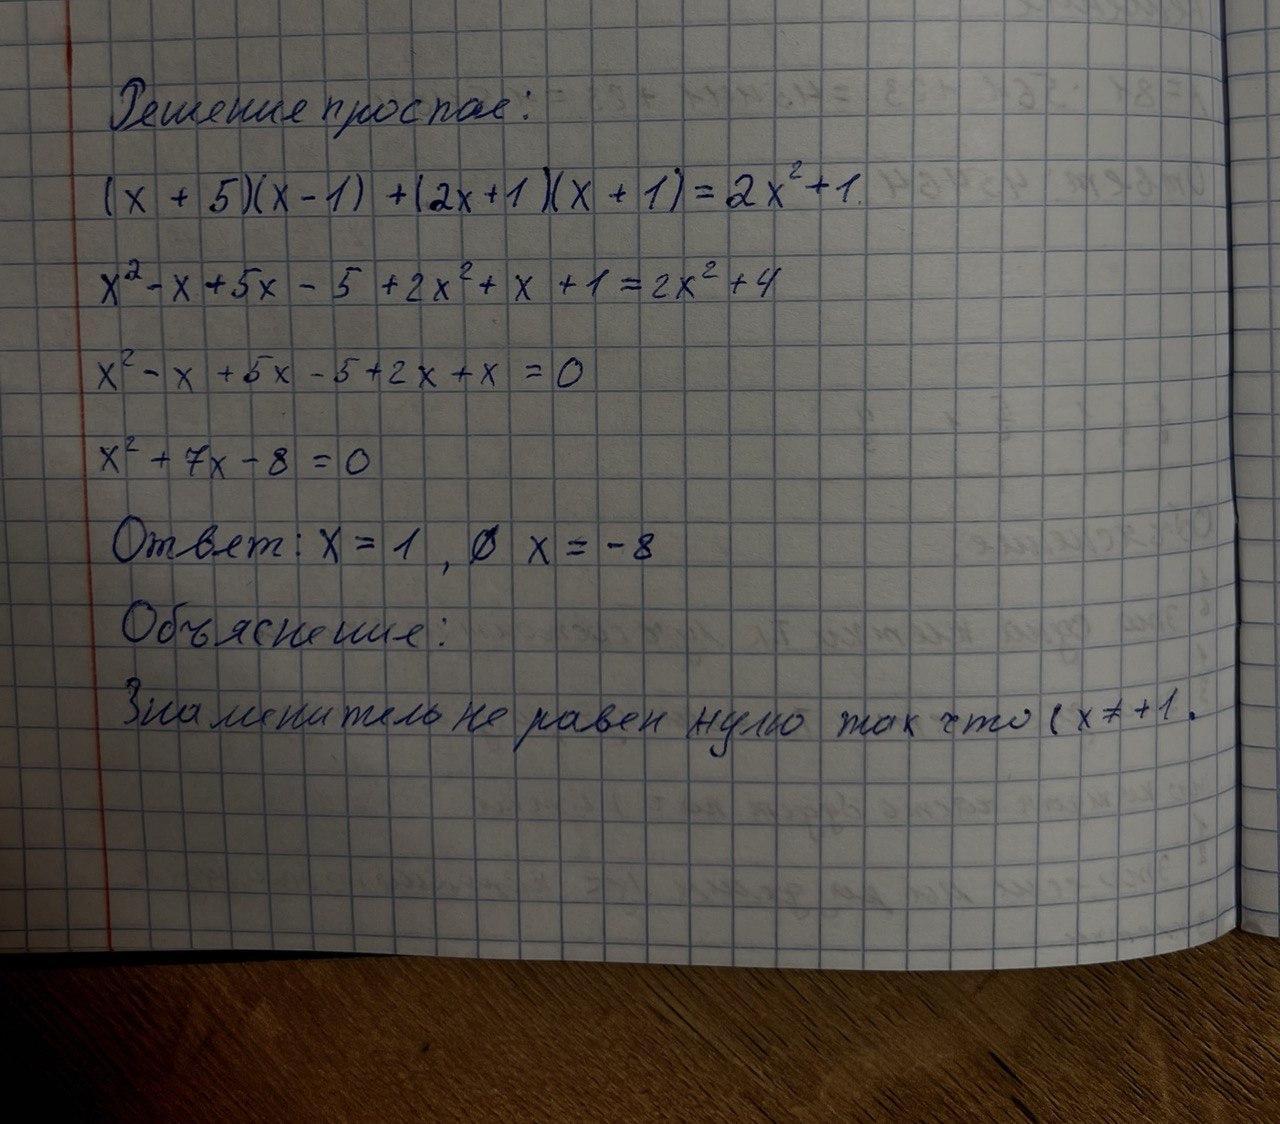 Решение простое:
(x + 5)(x - 1) + (2x + 1)(x + 1) = 2x² + 1.
x² - x + 5x - 5 + 2x² + x + 1 = 2x² + 4
x² - x + 5x - 5 + 2x + x = 0
x² + 7x - 8 = 0
Ответ: x = 1 , x = -8
Объяснение:
Знаменитель не равен нулю так что ( x ≠ +1.